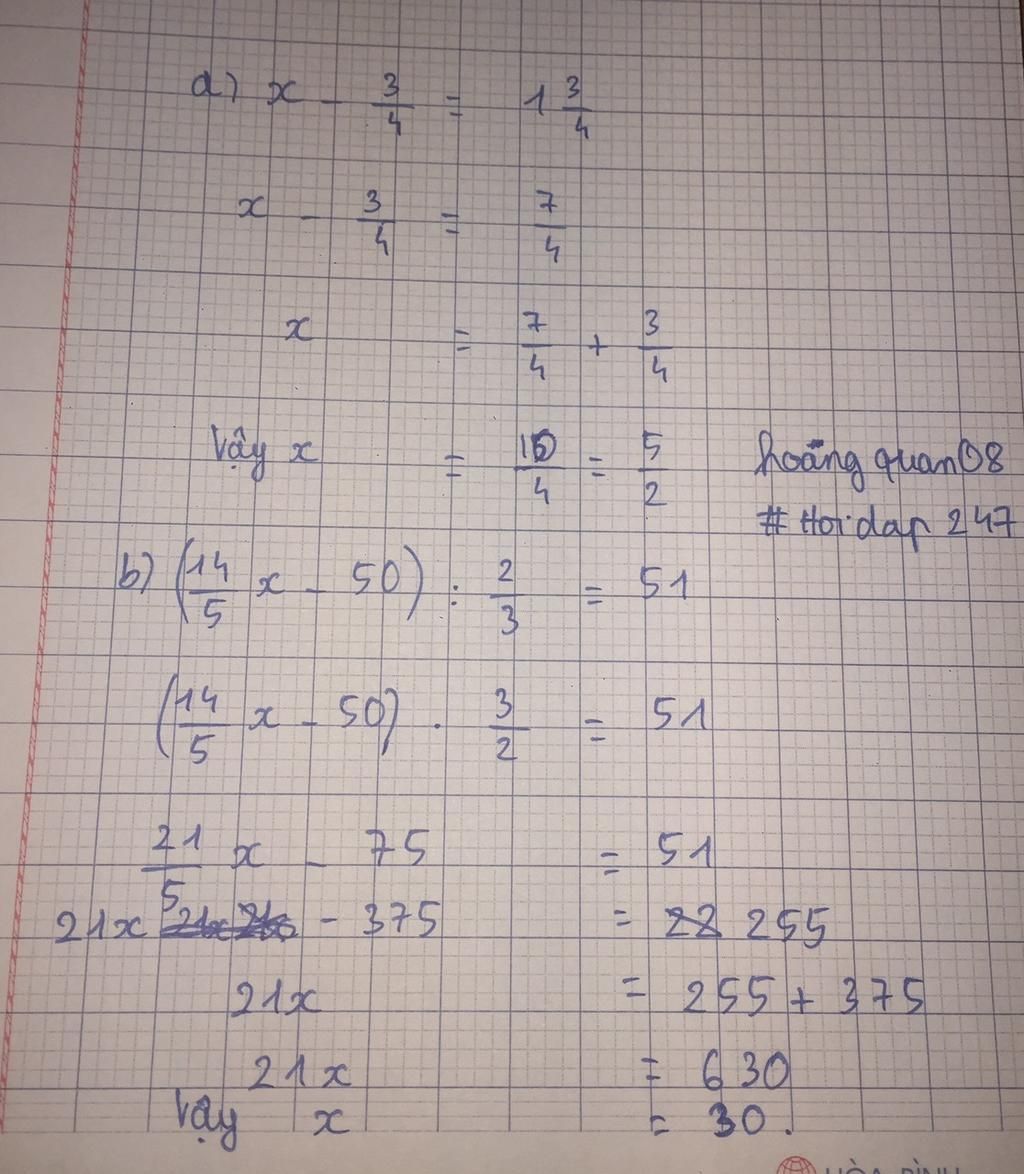 a) x - 3/4 = 1 3/4
x - 3/4 = 7/4
x = 7/4 + 3/4
Vậy x = 10/4 = 5/2
hoangquan08
# Hoidap 247
b) (14/5 x - 50) : 2/3 = 51
(14/5 x - 50) . 3/2 = 51
21/5 x - 75 = 51
21x - 375 = 255
21x = 255 + 375
21x = 630
Vậy x = 30.
HÒA BÌNH